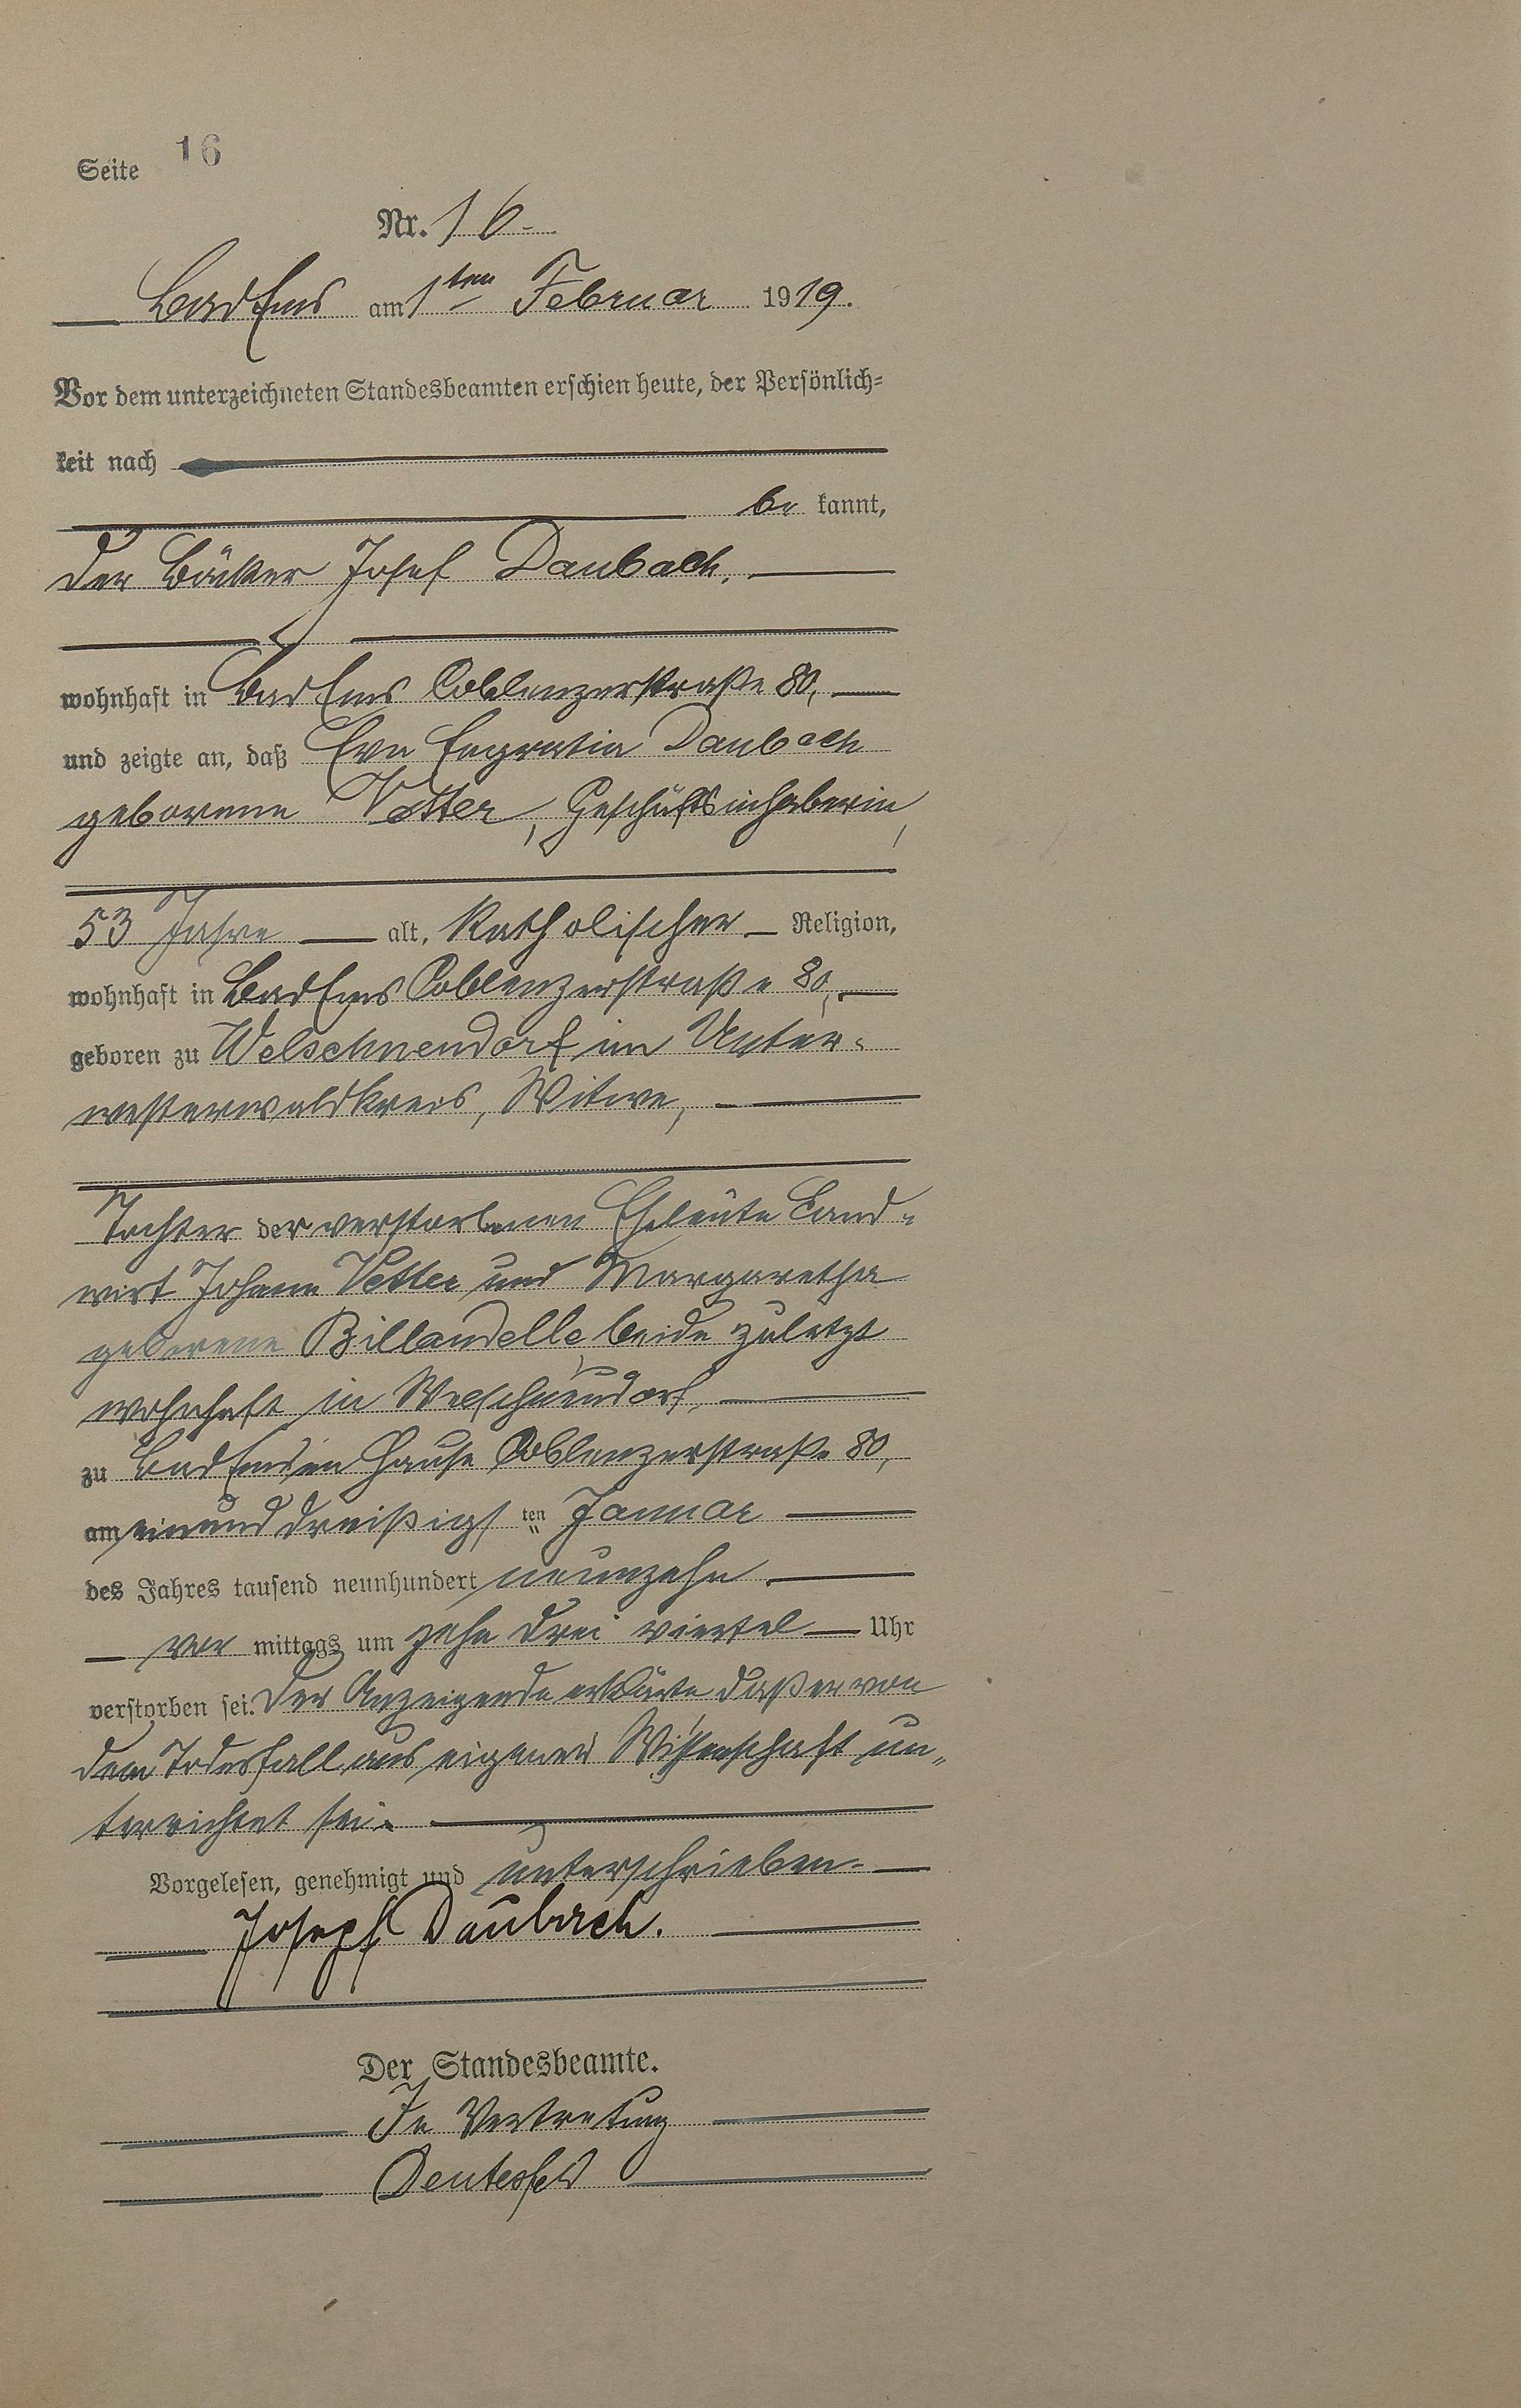 Seite 16
Nr. 16.
Bad Ems am 1ten Februar 1919.
Vor dem unterzeichneten Standesbeamten erschien heute, der Persönlich=
keit nach
be kannt,
der Bäcker Josef Daubach,
wohnhaft in Bad Ems Coblenzerstraße 80,
und zeigte an, daß Eva Engratia Daubach
geborene Vetter, Geschäftsinhaberin,
53 Jahre alt, katholischer Religion,
wohnhaft in Bad Ems Coblenzerstraße 80,
geboren zu Welschneudorf im Unter-
westerwaldkreis, Witwe,
Tochter der verstorbenen Eheleute Land-
wirt Johann Vetter und Margaretha
geborene Billaudelle, beide zuletzt
wohnhaft in Welschneudorf,
zu Bad Ems im Hause Coblenzerstraße 80,
am einunddreißigs ten Januar
des Jahres tausend neunhundert neunzehn
vor mittags um zehn drei viertel Uhr
verstorben sei. Der Anzeigende erklärte daß er von
dem Todesfall aus eigener Wissenschaft un-
terrichtet sei.
Vorgelesen, genehmigt und unterschrieben.
Joseph Daubach.
Der Standesbeamte.
In Vertretung